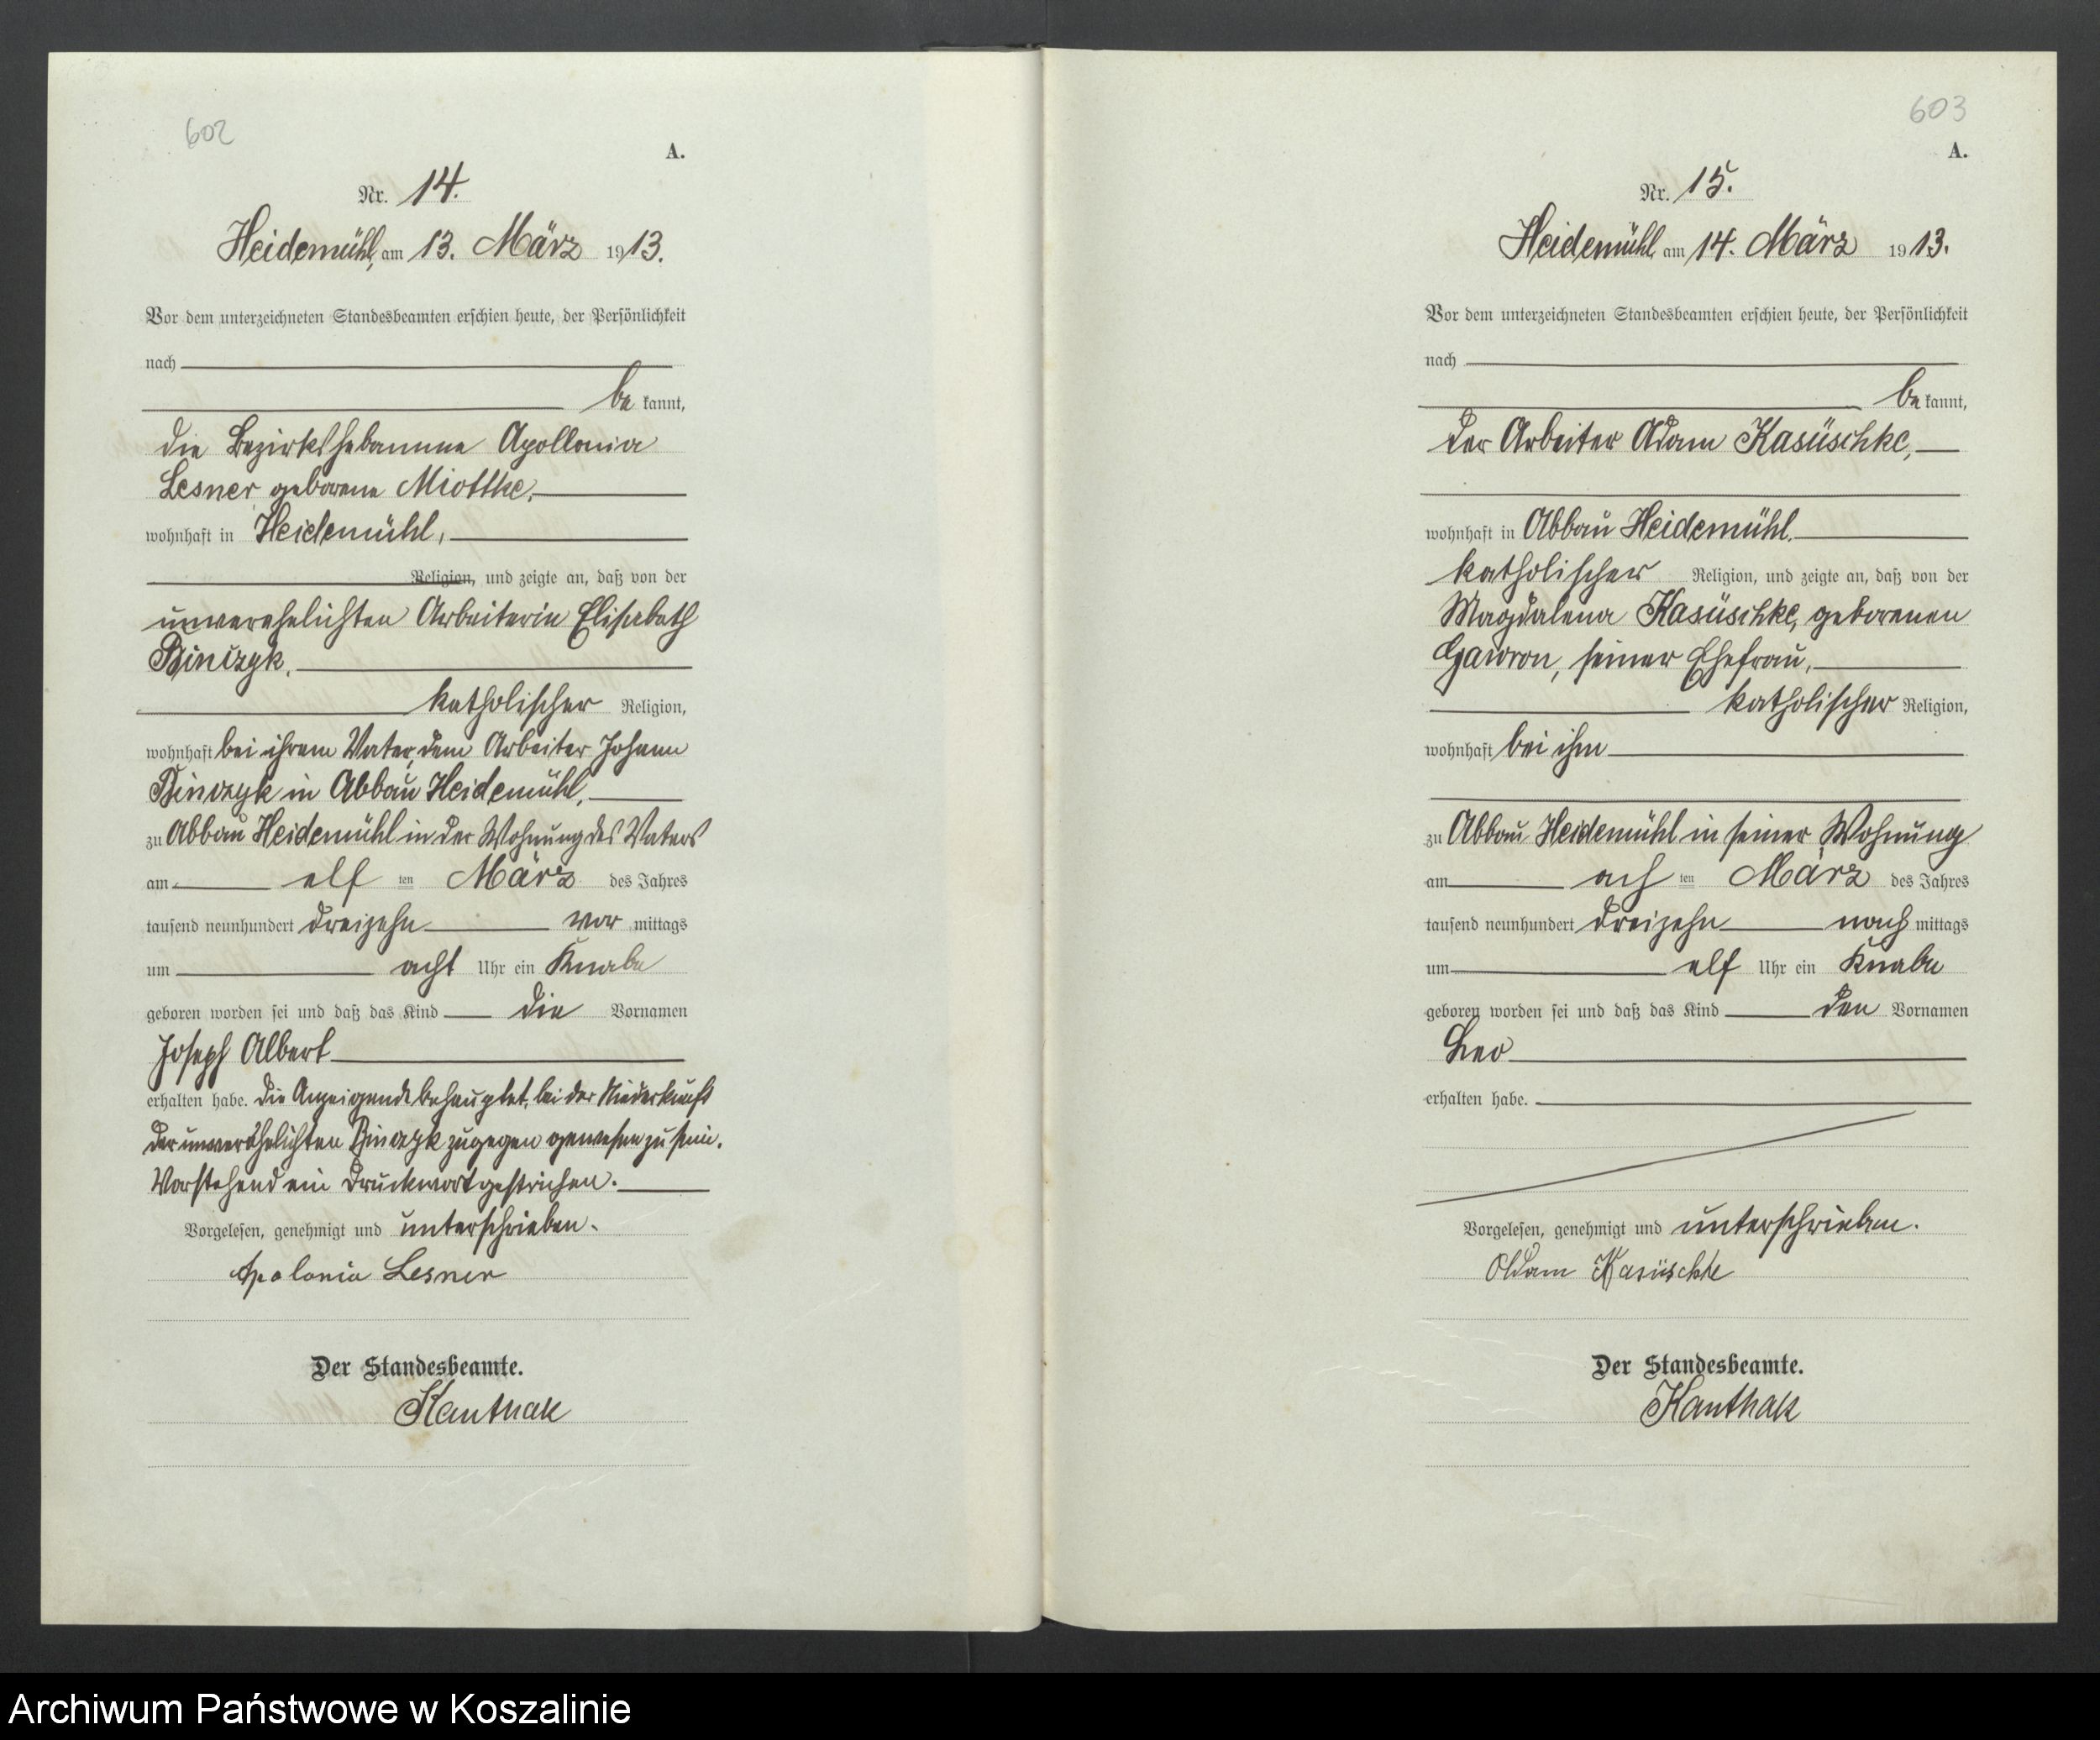 602
A.
Nr. 14.
Heidemühl, am 13. März 1913.
Vor dem unterzeichneten Standesbeamten erschien heute, der Persönlichkeit
nach
be kannt,
die Bezirkshebamme Apollonia
Lesner geborene Miottke,
wohnhaft in Heidemühl,
Religion, und zeigte an, daß von der
unverehelichten Arbeiterin Elisabeth
Binczyk,
katholischer Religion,
wohnhaft bei ihrem Vater, dem Arbeiter Johann
Binczyk in Abbau Heidemühl,
zu Abbau Heidemühl in der Wohnung des Vaters
am elf ten März des Jahres
tausend neunhundert dreizehn vor mittags
um acht Uhr ein Knabe
geboren worden sei und daß das Kind die Vornamen
Joseph Albert
erhalten habe. Die Anzeigende behauptet, bei der Niederkunft
der unverehelichten Binczyk zugegen gewesen zu sein.
Vorstehend ein Druckwort gestrichen.
Vorgelesen, genehmigt und unterschrieben.
Apolonia Lesner
Der Standesbeamte.
Kanthak
603
A.
Nr. 15.
Heidemühl, am 14. März 1913.
Vor dem unterzeichneten Standesbeamten erschien heute, der Persönlichkeit
nach
be kannt,
der Arbeiter Adam Kasüschke,
wohnhaft in Abbau Heidemühl,
katholischer Religion, und zeigte an, daß von der
Magdalena Kasüschke, geborenen
Gawron, seiner Ehefrau,
katholischer Religion,
wohnhaft bei ihm
zu Abbau Heidemühl in seiner Wohnung
am ach ten März des Jahres
tausend neunhundert dreizehn nach mittags
um elf Uhr ein Knabe
geboren worden sei und daß das Kind den Vornamen
Leo
erhalten habe.
Vorgelesen, genehmigt und unterschrieben.
Adam Kasüschke
Der Standesbeamte.
Kanthak
Archiwum Państwowe w Koszalinie